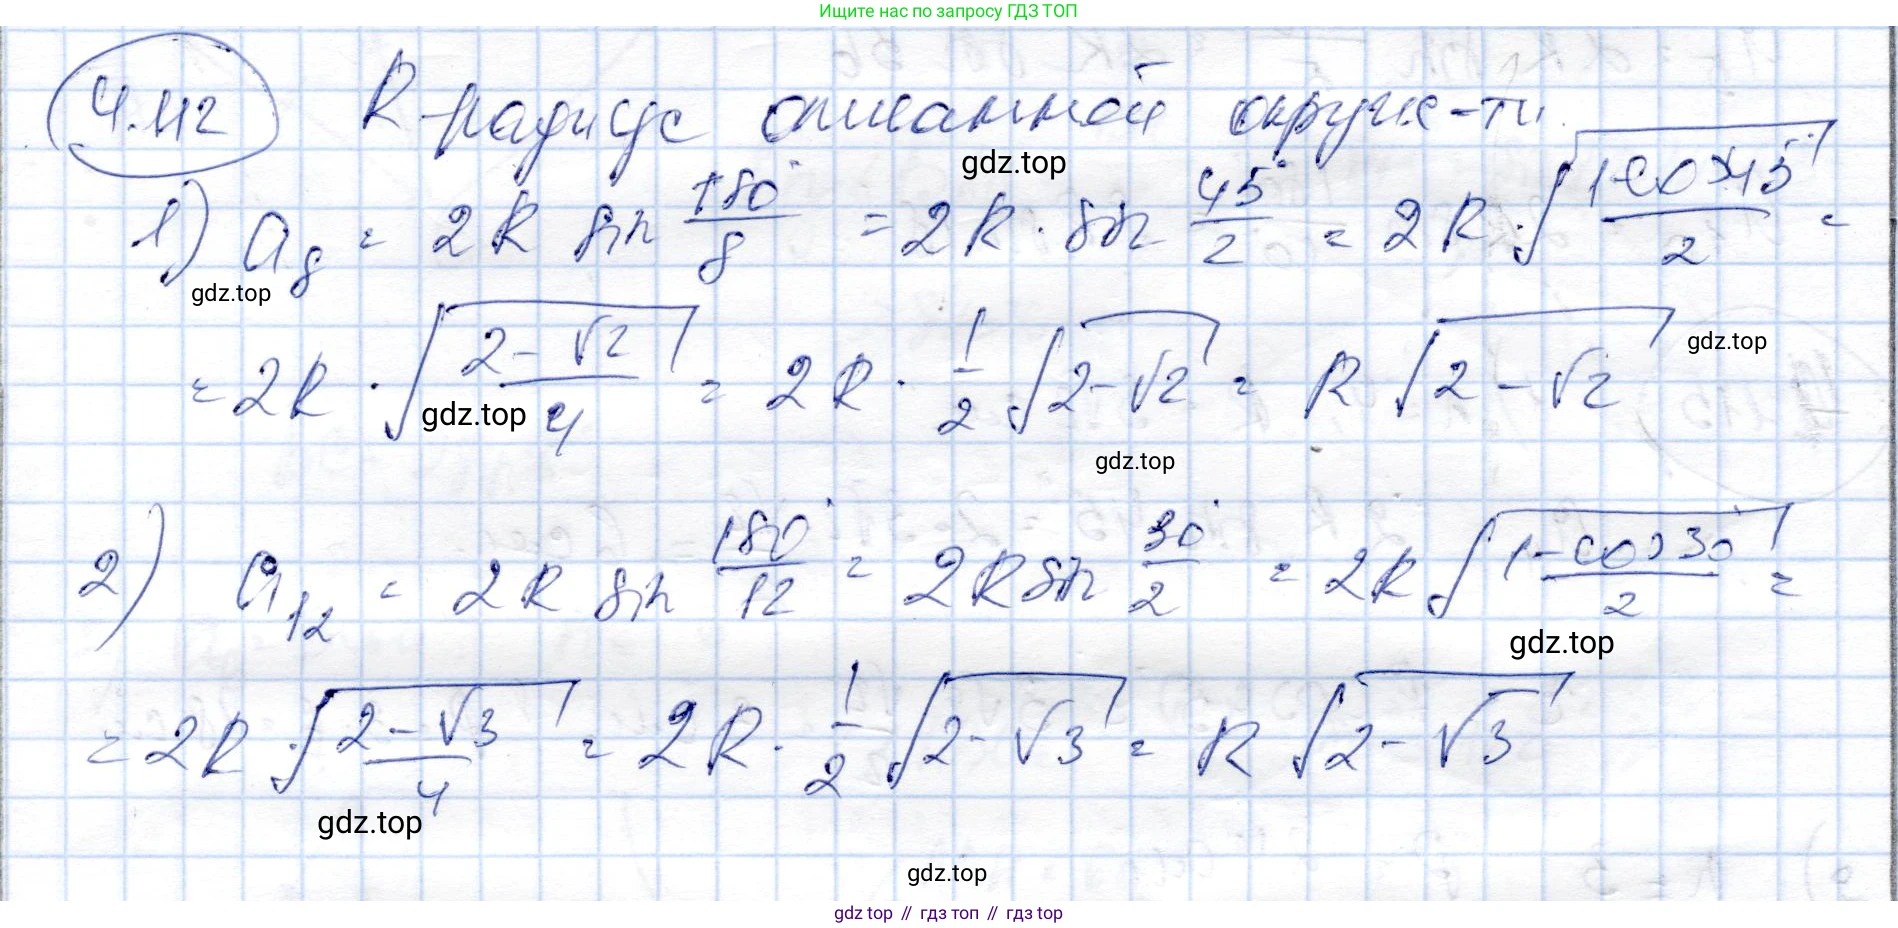 Ищите нас по запросу ГДЗ ТОП
4.112 R - радиус описанной окруж-ти.
gdz.top
1) a₈ = 2R sin 180°/8 = 2R · sin 45°/2 = 2R · √((1-cos45°)/2) =
gdz.top
= 2R · √((2-√2)/4) = 2R · 1/2 √(2-√2) = R √(2-√2)
gdz.top
gdz.top
gdz.top
2) a₁₂ = 2R sin 180°/12 = 2R sin 30°/2 = 2R √((1-cos30°)/2) =
gdz.top
= 2R · √((2-√3)/4) = 2R · 1/2 √(2-√3) = R √(2-√3)
gdz.top
gdz.top
gdz top // гдз топ // гдз top